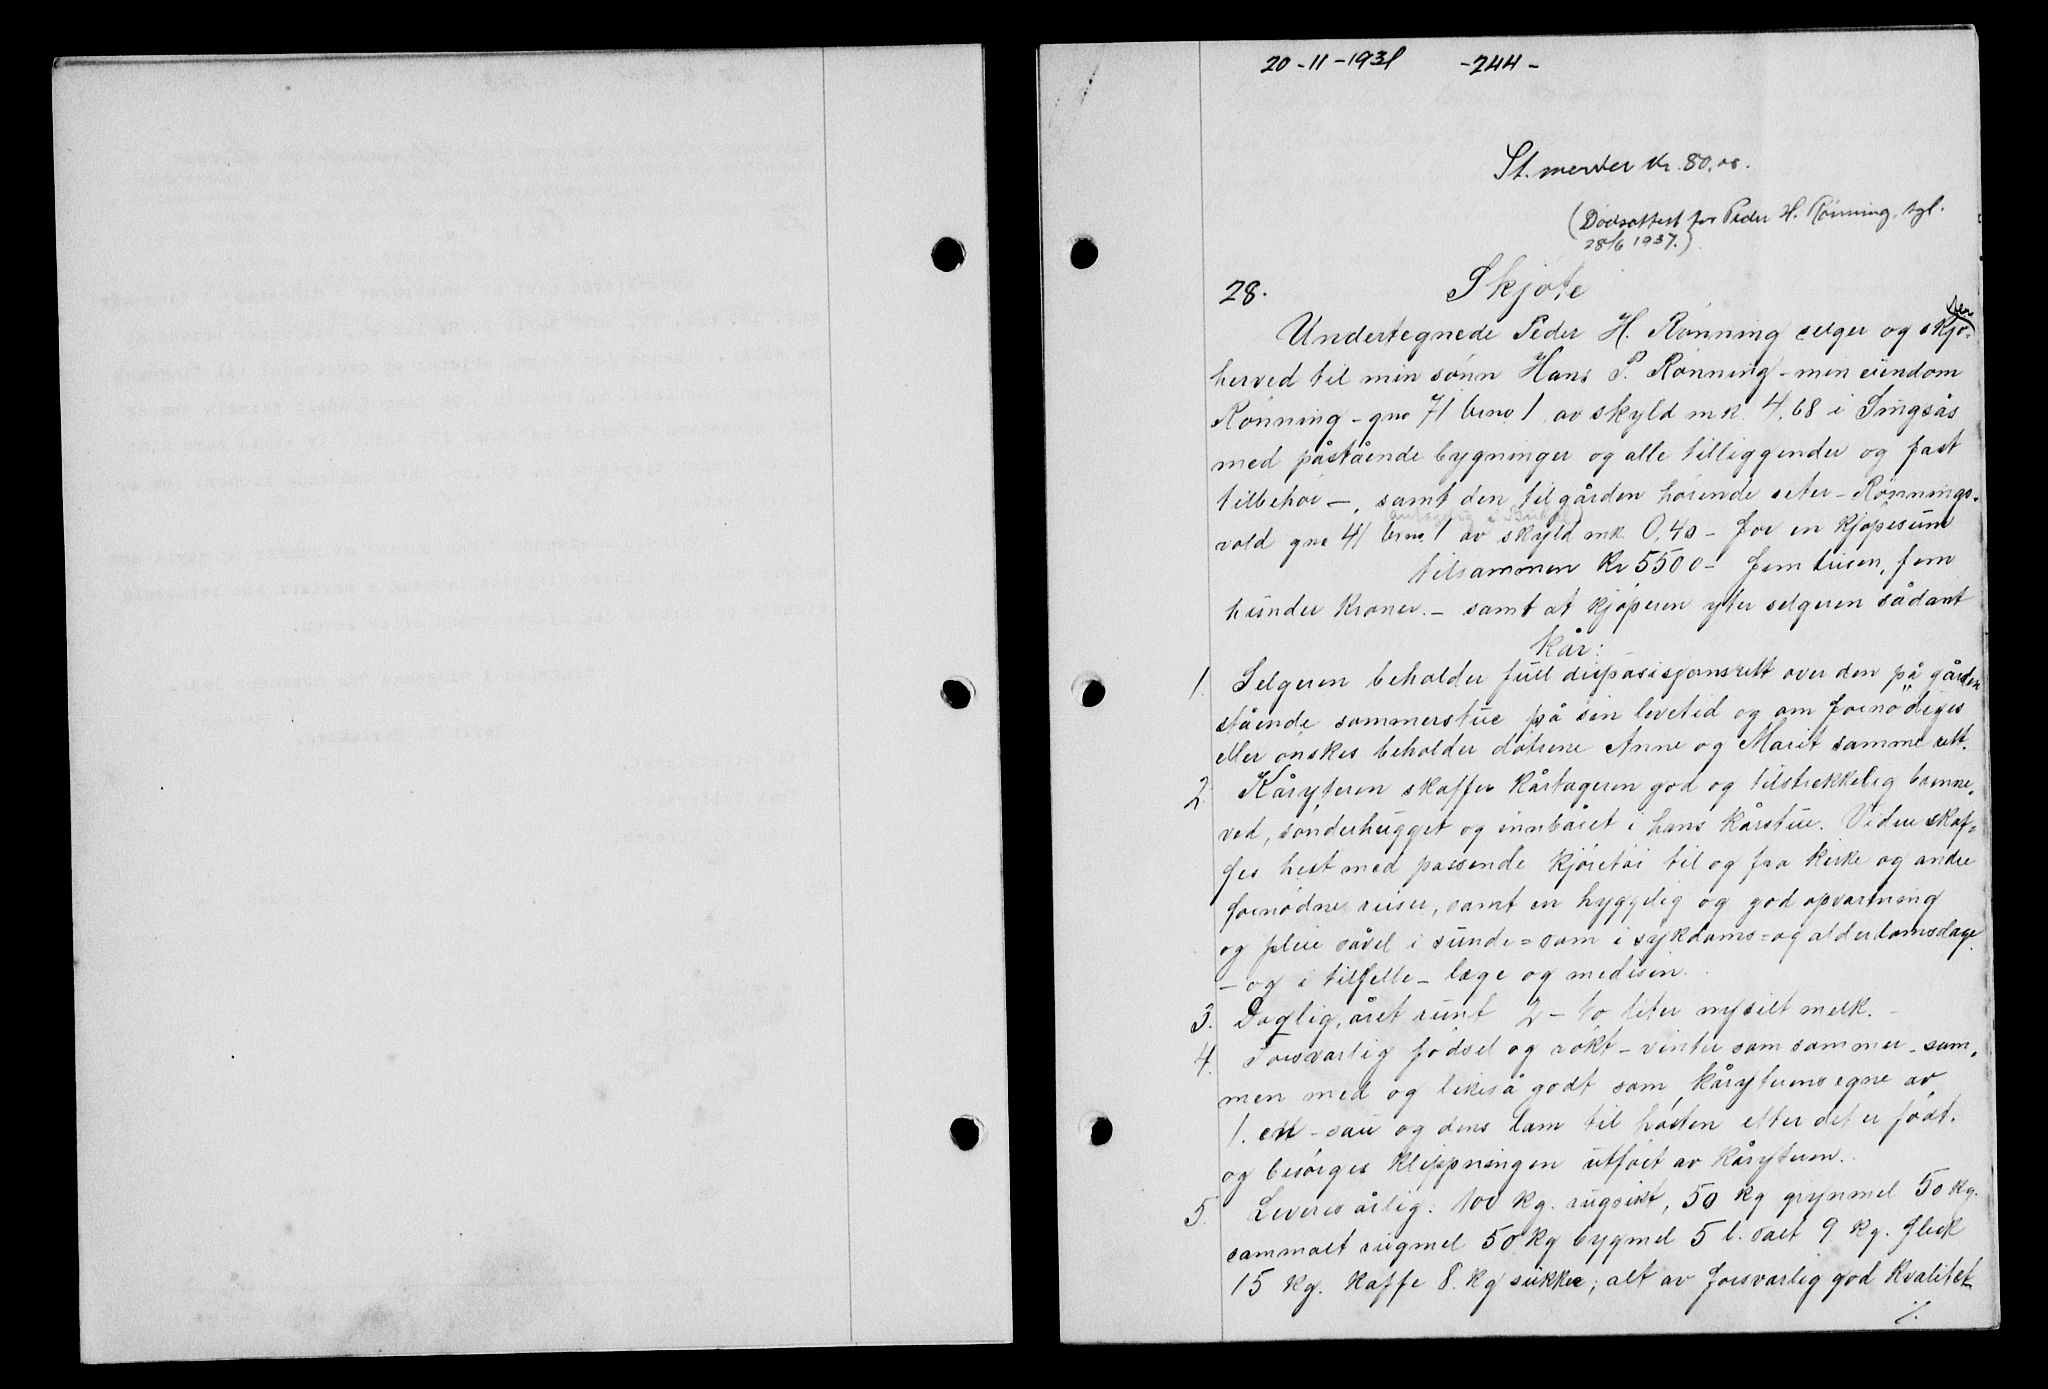 20-11-1931 -244-
St. merker kr. 80,00.
(Dødsattest for Peder H. Rønning, tgl.
28/6 1937.)
28. Skjøte
Undertegnede Peder H. Rønning selger og skjø-
ter
herved til min sønn Hans P. Rønning - min eiendom
Rønning - gno 71 brno 1 av skyld mk. 4,68 i Singsås
med påstående bygninger og alle tilliggender og fast
tilbehør -, samt den til gården hørende seter - Rønnings-
vold gno 41 brno. 1 av skyld mk. 0,40 - for en kjøpesum
tilsammen Kr 5500 - fem tusen, fem
hunder kroner. - samt at kjøperen yter selgeren sådant
kår:
1. Selgeren beholder full disposisjonsrett over den på gården
stående sommerstue på sin levetid og om fornødiges
eller ønskes beholder døtrene Anne og Marit samme rett.
2. Kåryteren skaffer kårtageren god og tilstrekkelig brenne-
ved, sønderhugget og innbåret i hans kårstue. Videre skaf-
fes hest med passende kjøretøi til og fra kirke og andre
fornødne reiser, samt en hyggelig og god opvartning
og pleie såvel i sunde= som i sykdoms= og alderdomsdage.
- og i tilfelle - læge og medisin.
3. Daglig, året runt 2 - to liter nysilt melk. -
4. Forsvarlig fødsel og røkt - vinter som sommer - sam-
men med og likeså godt som kåryterens egne av
1. en - sau og dens lam til høsten etter det er født.
og besørges klippningen utført av kåryteren.
5. Leveres årlig: 100 kg. rugsikt, 50 kg grynmel 50 kg.
sammalt rugmel 50 kg bygmel 5 l. salt 9 kg. flesk
15 kg. kaffe 8. kg sukker; alt av forsvarlig god kvalitet
./.